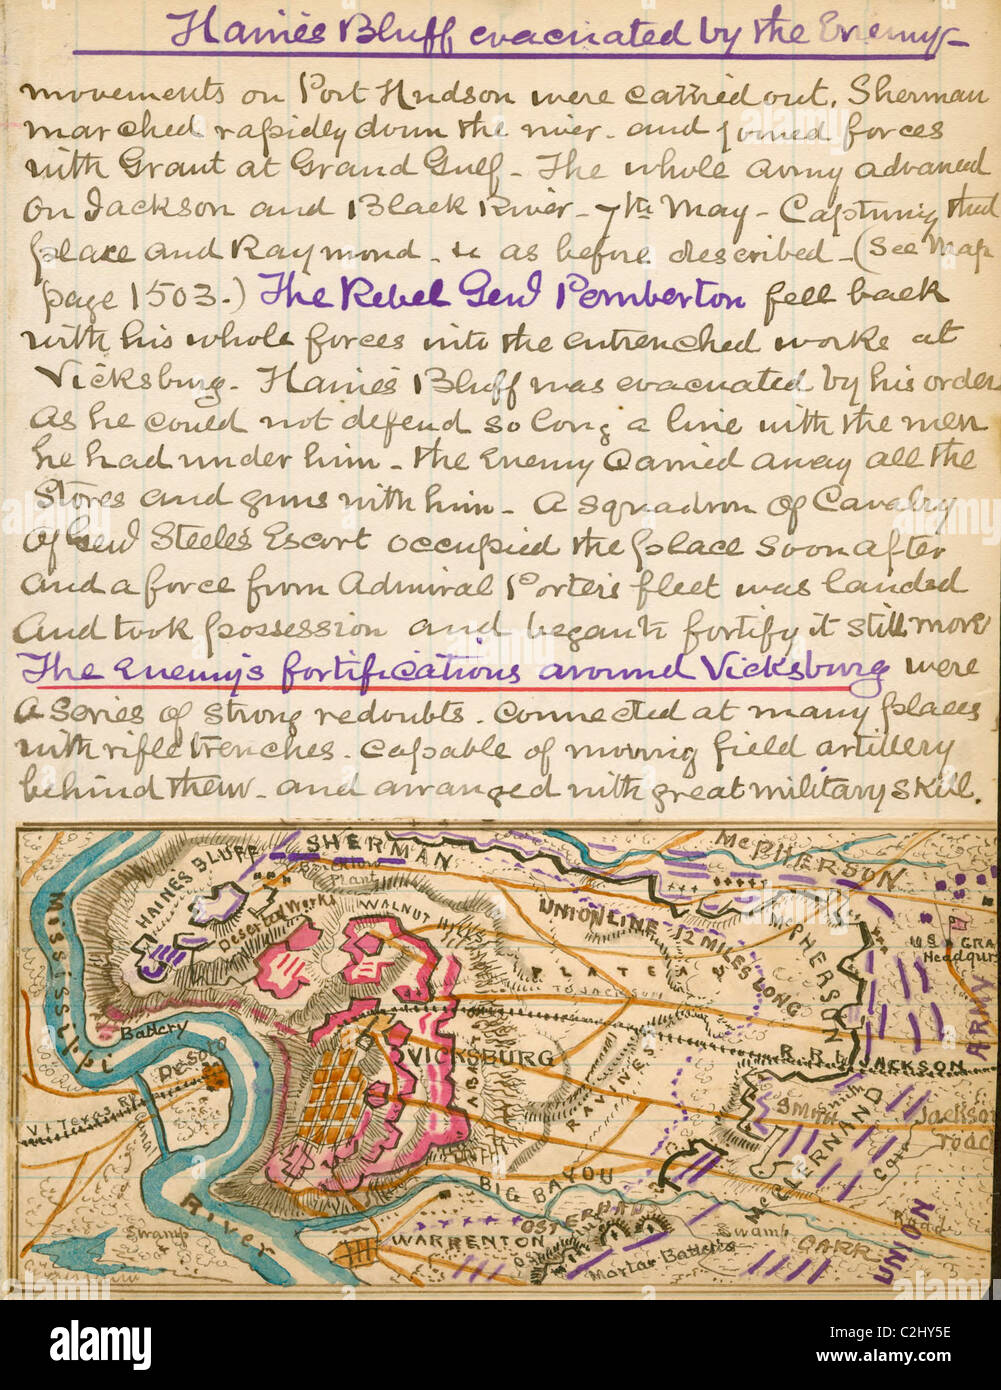 Haines Bluff evacuated by the Enemy-
movements on Port Hudson were carried out. Sherman
marched rapidly down the river. and joined forces
with Grant at Grand Gulf - The whole army advanced
on Jackson and Black River - 7th May - Capturing that
place and Raymond - &c as before described - (See Map
page 1503.) The Rebel Genl Pemberton fell back
with his whole forces into the entrenched works at
Vicksburg. Haines Bluff was evacuated by his order
as he could not defend so long a line with the men
he had under him - the Enemy Carried away all the
Stores and guns with him - A squadron of Cavalry
of Genl Steele's Escort occupied the place soon after
and a force from Admiral Porter's fleet was landed
And took possession and began to fortify it still more
The Enemy's fortifications around Vicksburg were
a series of strong redoubts. connected at many places
with rifle trenches. capable of moving field artillery
behind them - and arranged with great military skill.
SHERMAN
McPHERSON
HAINES BLUFF
Plant
Deserted Works
WALNUT HILLS
UNION LINE 12 MILES LONG
McPHERSON
U S GRA
Headqurs
PLATEAU
TO JACKSON
Mississippi
Battery
De Soto
VICKSBURG
ABATTIS
RAVINES
R.R. to JACKSON
ARMY
SMITH
Jackson
road
Canal
McCLERNAND
Carr
BIG BAYOU
River
Swamp
WARRENTON
OSTERHAN
Mortar Batterys
Swamp
CARR
Road
UNION
alamy
C2HY5E
www.alamy.com